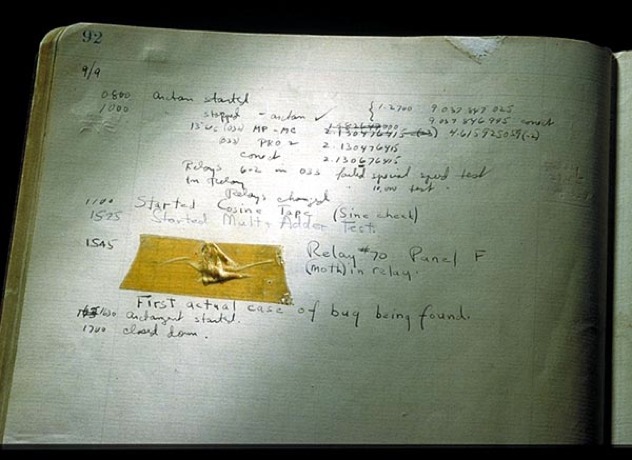 92
9/9
0800 antan started
1000 stopped - antan ✓ { 1.2700 9.037 847 025
9.037 846 995 conect
13" uc (032) MP - MC 2.130476415 (-3) 4.615925059(-2)
(033) PRO 2 2.130476415
conect 2.130676415
Relays 6-2 in 033 failed special speed test
in Relay 10,000 test.
Relays changed
1100 Started Cosine Tape (Sine check)
1525 Started Mult+ Adder Test.
1545 Relay #70 Panel F
(moth) in relay.
First actual case of bug being found.
1630 antangent started.
1700 closed down.